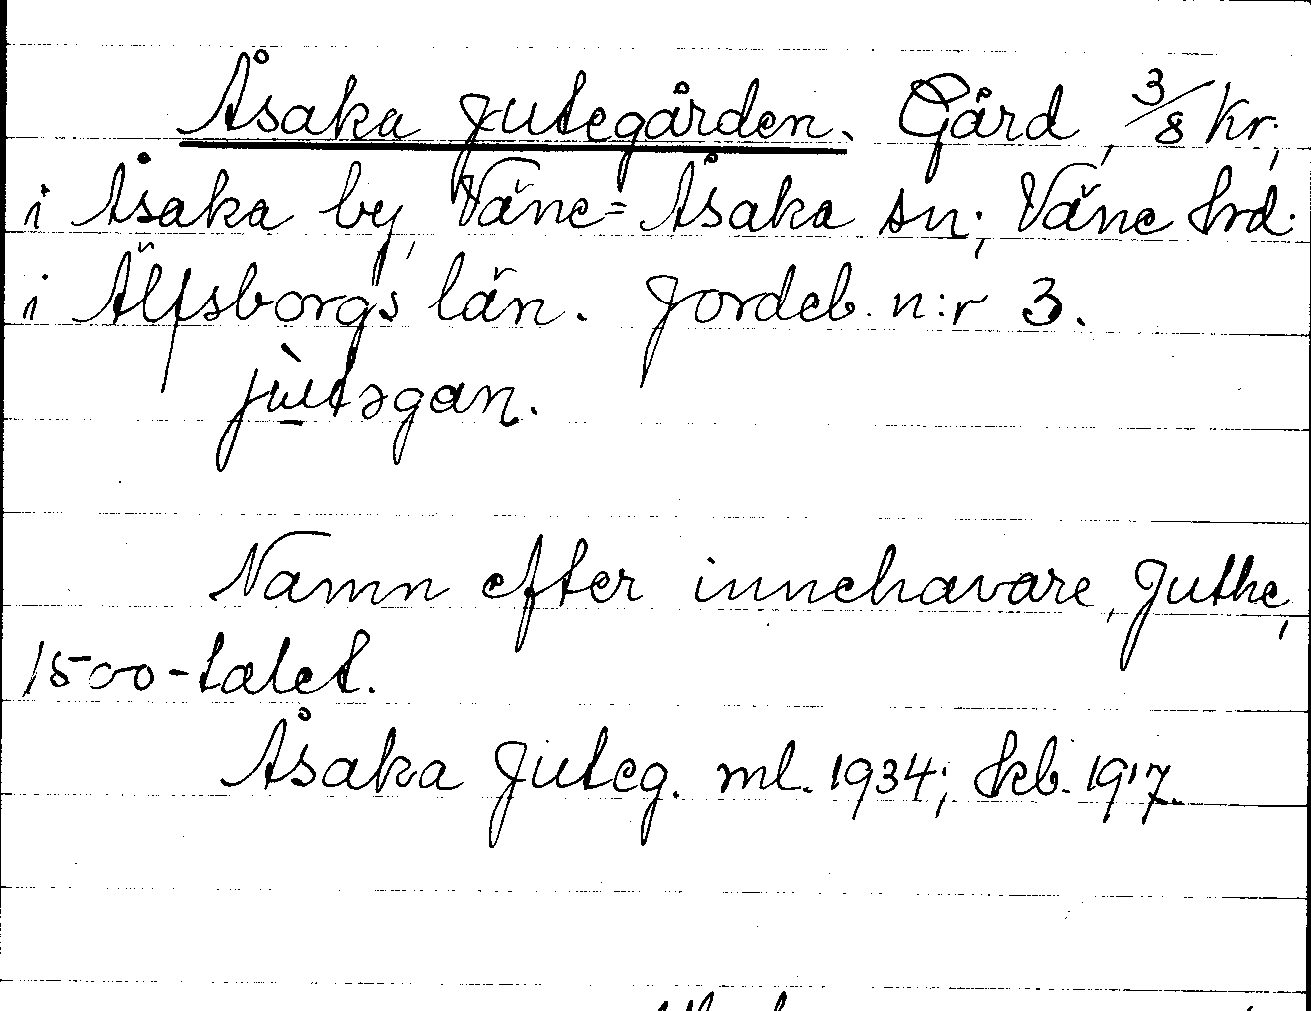 Åsaka Jutegården. Gård, 3/8 Kr,
i Åsaka by, Väne=Åsaka sn, Väne hrd.
i Älfsborgs län. Jordeb. n:r 3.
jùtəgan.
Namn efter innehavare, Juthe,
1500-talet.
Åsaka Juteg. ml. 1934; kb. 1917.